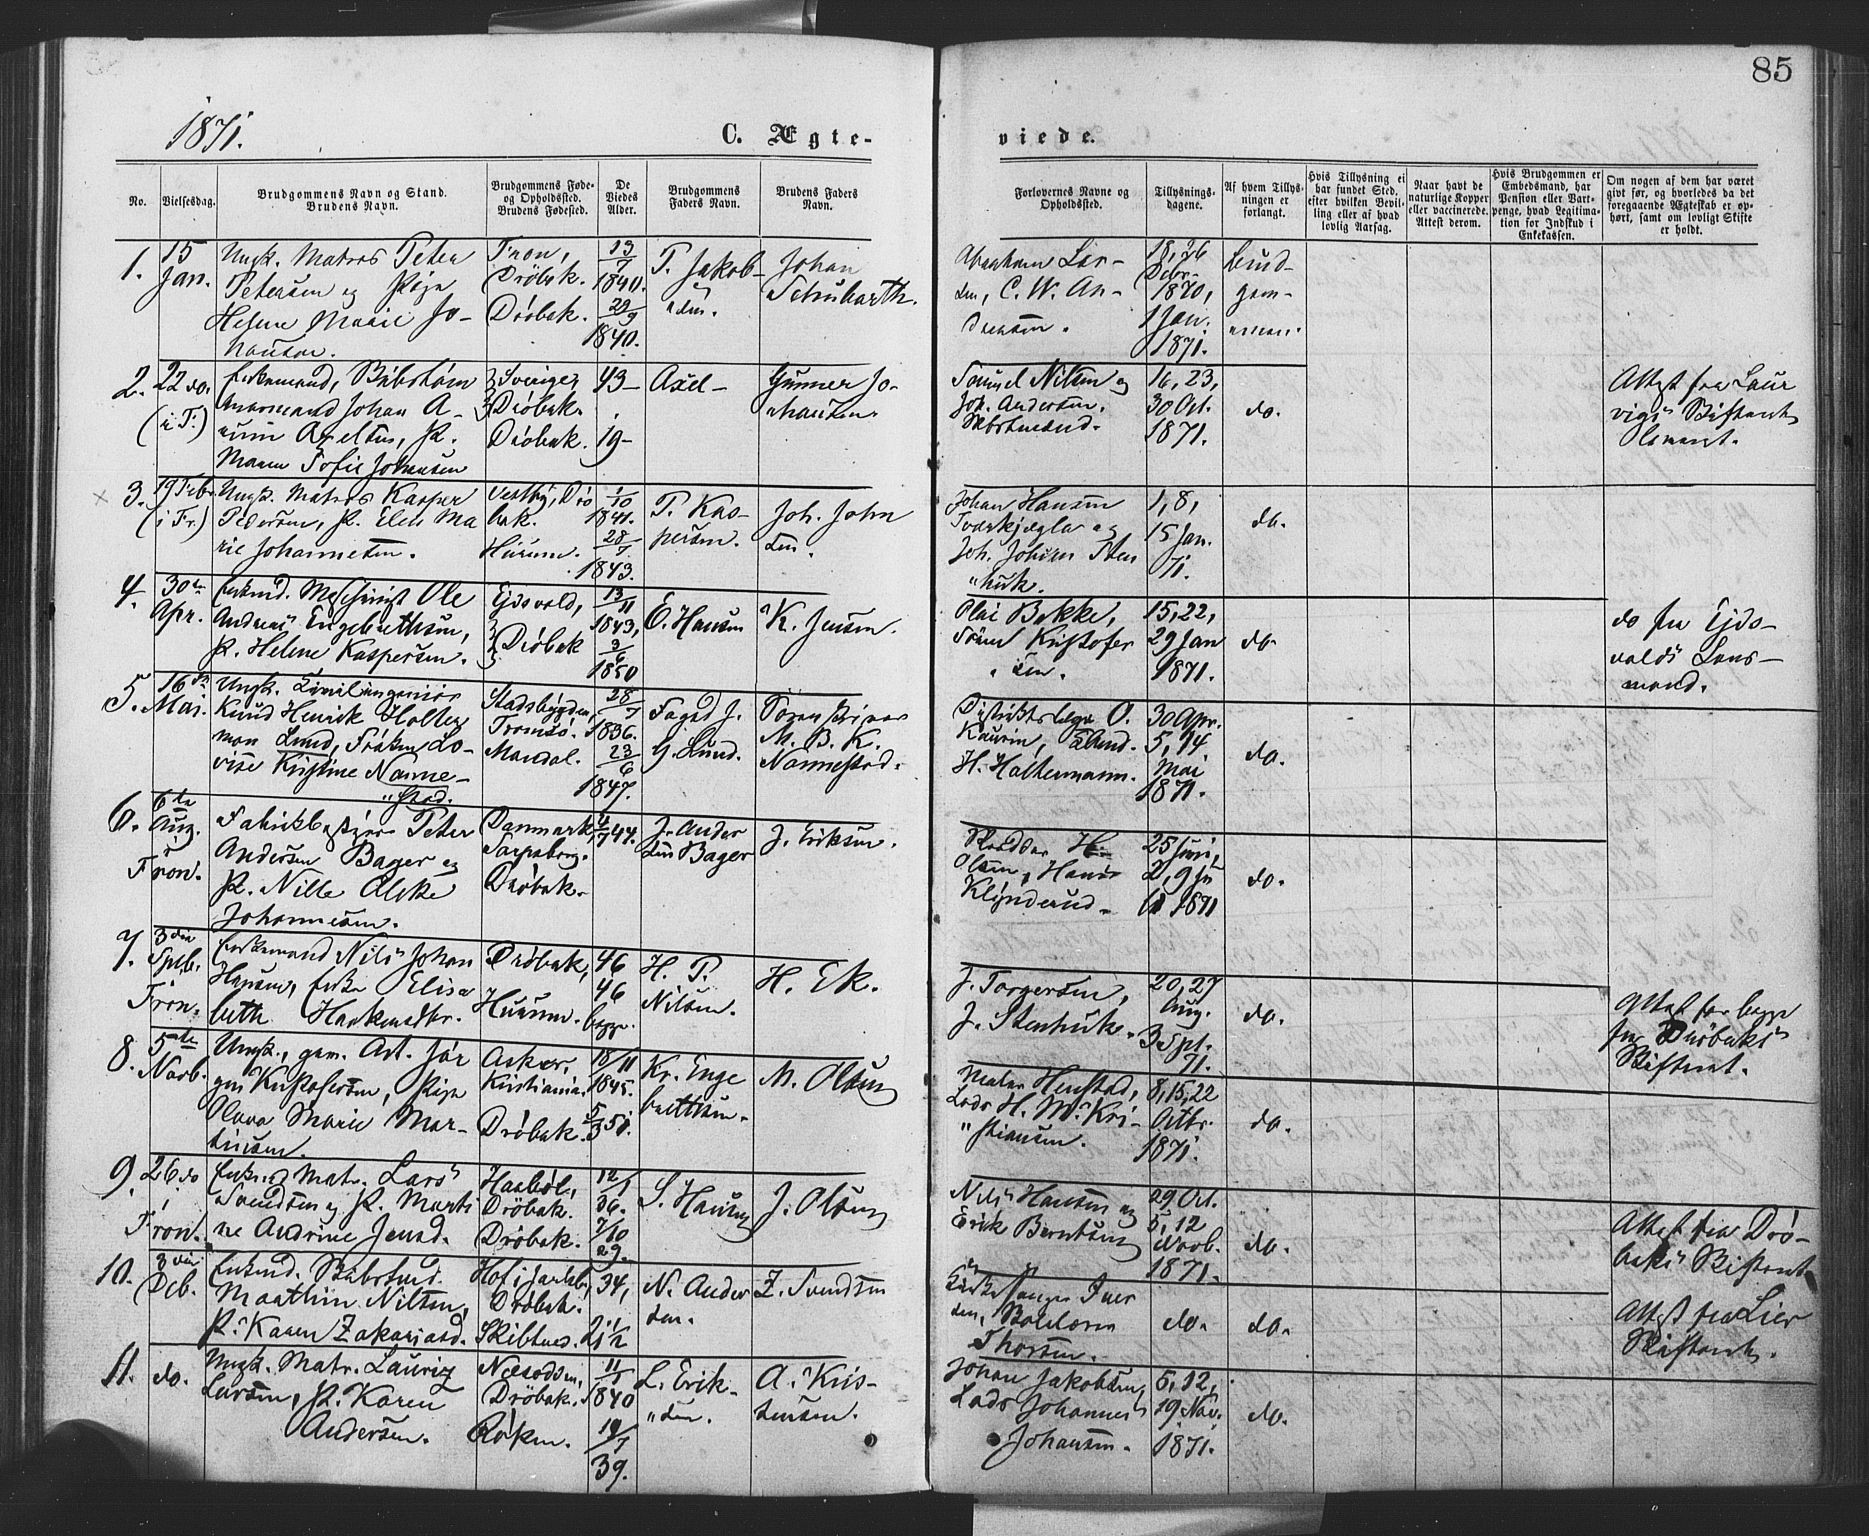 85
1871.
C. Ægte-
viede.
No.
Vielsesdag.
Brudgommens Navn og Stand.
Brudens Navn.
Brudgommens Føde-
og Opholdssted.
Brudens Fødested.
De
Viedes
Alder.
Brudgommens
Faders Navn.
Brudens Faders
Navn.
Forlovernes Navne og
Opholdssted.
Tillysnings-
dagene.
Af hvem Tillys-
ningen er
forlangt.
Hvis Tillysning ei
har fundet Sted,
efter hvilken Bevil-
ling eller af hvad
lovlig Aarsag.
Naar havt de
naturlige Kopper
eller vaccinerede.
Attest derom.
Hvis Brudgommen er
Embedsmand, har
Pension eller Vart-
penge, hvad Legitima-
tion for Indskud i
Enkekassen.
Om nogen af dem har været
gift før, og hvorledes da det
foregaaende Ægteskab er op-
hørt, samt om lovligt Skifte
er holdt.
1.
15
Jan.
Ungk. Matros Peter
Petersen og Pige
Helene Marie Jo-
hansen.
Fron,
Dröbak.
Dröbak.
13/7
1840.
29/9
1840.
P. Jakob-
sen.
Johan
Schubarth.
C. W. An-
dersen.
18, 26
Debr.
1870,
1 Jan.
1871.
Brud-
gom-
men.
2.
22 do.
(i F.)
Enkemand,
Johan A-
Axelsen, P.
Maren Sofie Johansen
Sverige,
Dröbak.
Dröbak.
43-
19-
Axel-
Gunner Jo-
hansen.
Samuel Nilsen og
Joh. Andersen.
16, 23,
30 Oct.
1871.
do.
Attest fra Laur
vigs Skifteret
3.
19 Febr.
(i Fr.)
Ungk. Matros Kasper
Pedersen, P. Elen Ma
rie Johannesen.
Vestby, Drö
bak.
Hurum.
1/10
1841.
28/7
1843.
P. Kas-
persen.
Joh. John
sen.
Johan Hansen
og
Joh. Johsen Sten
huk.
1, 8,
15 Jan.
71.
do.
4.
30te
Apr.
Enkmd. Maschinist Ole
Andreas Engebrethsen,
P. Helene Kaspersen.
Ejdsvold,
Dröbak
13/11
1843,
3/6
1850
E. Hansen
K. Jensen.
Olai Bekke,
Kristofer
sen.
15, 22,
29 Jan
1871.
do
do fra Ejds-
volds Lens-
mand.
5.
16de
Mai.
Ungk. Civilingeniör
Knud Henrik Holter
man Lund, Fröken Lo-
vise Kristine Nanne-
stad.
Stadsbygden,
Tromsö.
Mandal.
28/7
1836.
23/6
1847.
Foged J.
G. Lund.
M. B. K.
Nannestad.
Distriktslæge O.
Kaurin,
H. Holtermann.
30 Apr.
5, 14
Mai
1871.
do.
6.
6te
Aug.
i
Fron.
Peter
Andersen Bager og
P. Nille Elske
Johannesen.
Danmark,
Sarpsborg.
Dröbak.
4/7 44.
J. Ander
sen Bager
J. Eriksen.
Skrædder H.
Olsen, Hans
Klynderud.
25 Juni,
2, 9 Ju
li 1871
do.
7.
3die
Sptb.
i
Fron.
Enkemand Nils Johan
Hansen, Enke Elisa
beth
Dröbak,
Hurum.
46
46
begge.
H. P.
Nilsen.
H. Ek.
J. Torgersen,
J. Stenhuk.
20, 27
Aug.
3 Spt.
71.
do.
Attest for begge
fra Dröbaks
Skifteret.
8.
5te
Novb.
Ungk., gem. Art. Jör
gen Kristofersen, Pige
Olava Marie Mar-
tinsen.
Asker,
Kristiania.
Dröbak.
18/11
1845.
5/3 51.
Kr. Enge
brethsen.
M. Olsen
Maler Henstad,
Lods H. M. Kri-
stiansen.
8, 15, 22
Octbr.
1871.
do.
9.
26 do
i
Fron.
Enkmd Matr. Lars
Svendsen og P. Marti
ne Andrine Jensd.
Haaböl,
Dröbak.
Dröbak.
12/1
36.
7/10
29.
S. Hansen
J. Olsen
Nils Hansen og
Erik Berntsen
29 Oct.
5, 12
Novb.
1871.
do.
Attest fra Drö-
baks Skifteret
10.
3die
Dcb.
Enkmd.
Mathiin Nilsen,
P. Karen Zakariasd.
Hof i Jarlsb.,
Dröbak.
34,
21 1/2
N. Ander
sen.
Z. Svendsen
Kirkesanger Iver
sen,
Thorsen.
do.
do.
Attest fra Lier
Skifteret.
11.
do.
Ungk. Matr. Lauritz
Larsen, P. Karen
Andersen.
Nesodden,
Dröbak.
Röken.
11/1
1840
19/7
39.
L. Erik-
sen.
A. Kris-
tensen.
Johan Jakobsen,
Lods Johannes
Johansen.
5, 12,
19 Nov.
1871.
do.